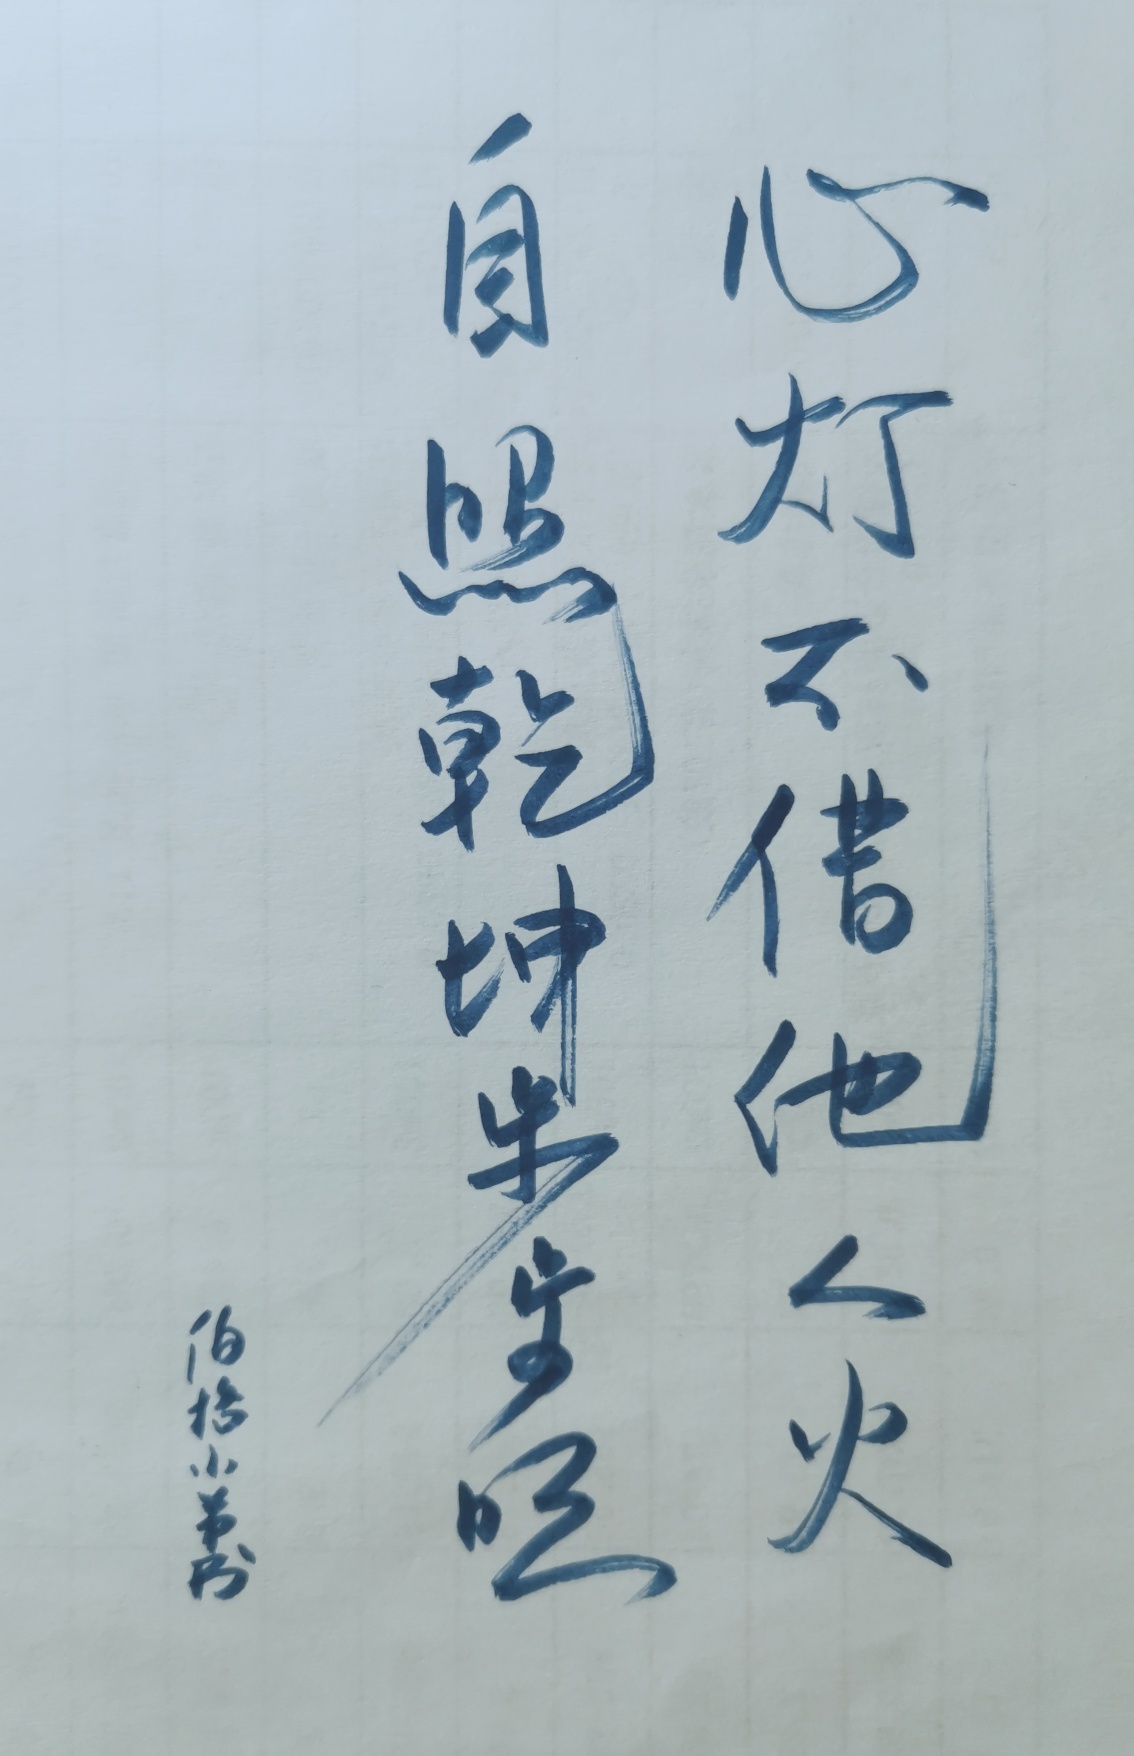 心灯不借他人火
自照乾坤步步照
伯 小